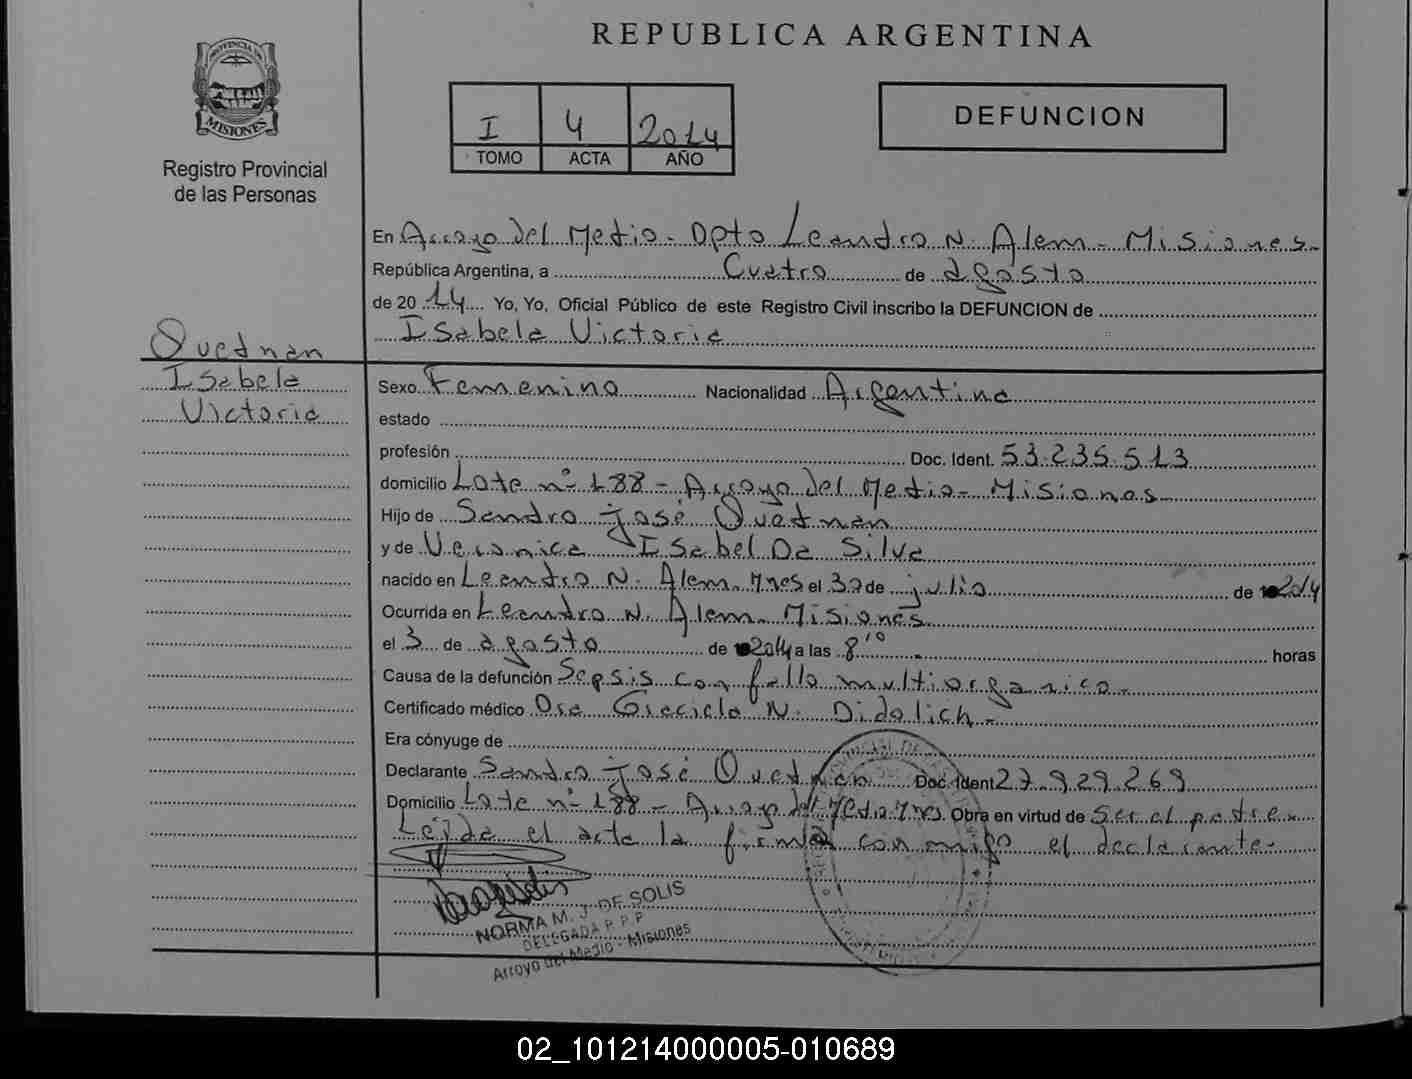 REPUBLICA ARGENTINA
PROVINCIA DE
MISIONES
Registro Provincial
de las Personas
I 4 2014
TOMO ACTA AÑO
DEFUNCION
En Arroyo Del Medio - Dpto Leandro N. Alem - Misiones.
República Argentina, a Cuatro de agosto
de 20 14 Yo, Yo, Oficial Público de este Registro Civil inscribo la DEFUNCION de
Isabela Victoria
Quednan
Isabela
Victoria
Sexo Femenino Nacionalidad Argentina
estado
profesión Doc. Ident. 53.235.513
domicilio Lote nº 188 - Arroyo Del Medio - Misiones
Hijo de Sandro José Quednan
y de Veronica Isabel Da Silva
nacido en Leandro N. Alem. Mnes el 30 de julio de 2014
Ocurrida en Leandro N. Alem. Misiones
el 3 de agosto de 2014 a las 8'10 horas
Causa de la defunción Sepsis con fallo multiorganico.
Certificado médico Dra Graciela N. Didolich.
Era cónyuge de
Declarante Sandro José Quednan Doc. Ident 27.929.269
Domicilio Lote nº 188 - Arroyo del Medio. Mnes. Obra en virtud de Ser el padre.
Leída el acta la firma conmigo el declarante.
NORMA M. J. DE SOLIS
DELEGADA R. P. P
Arroyo del Medio - Misiones
02_101214000005-010689